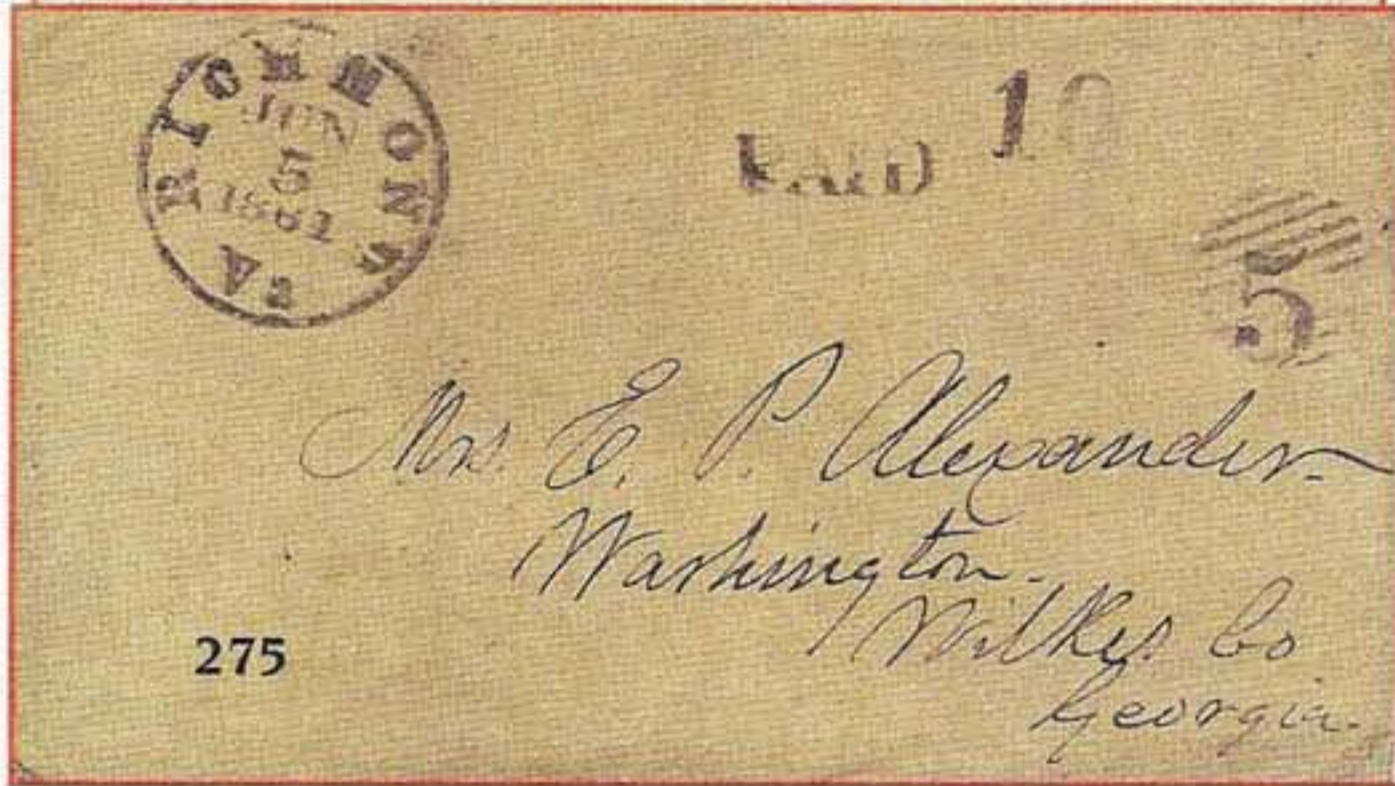 RICHMOND Va
JUN
5
1861
PAID 10
5
Mrs. E. P. Alexander
Washington.
Wilkes Co
Georgia.
275